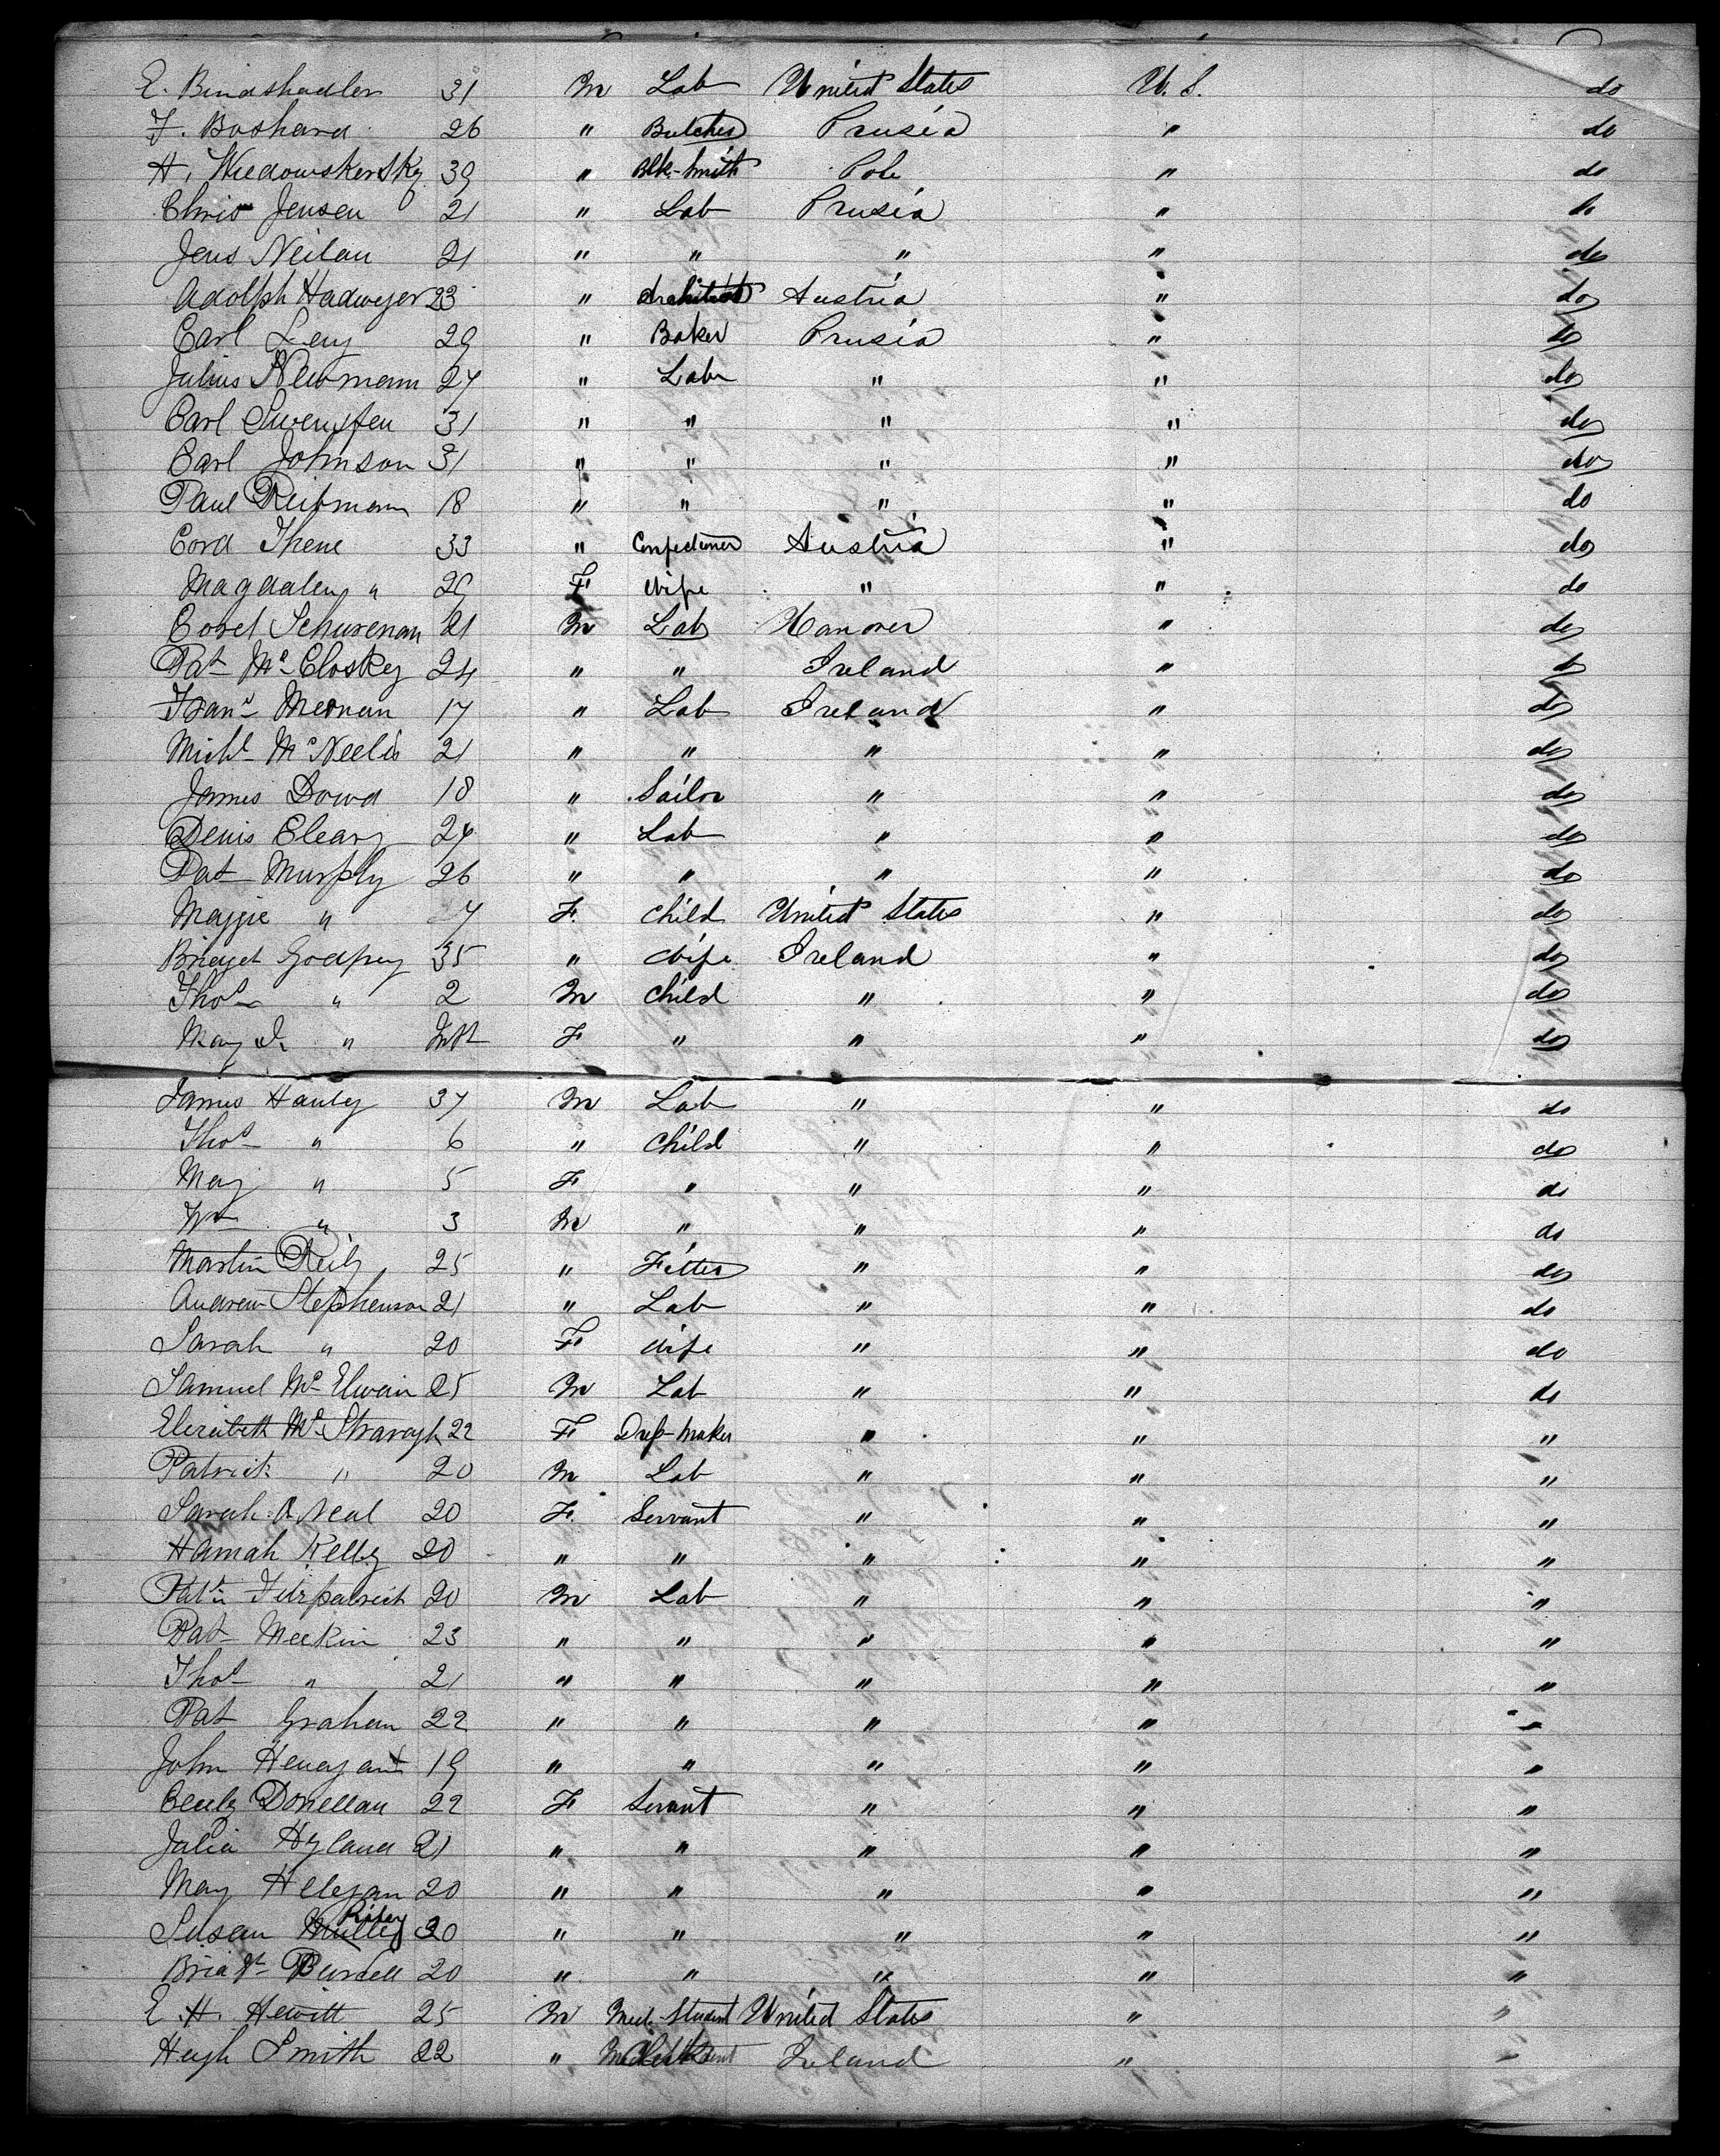 E. Bindshadler 31 M Lab United States U. S. do
F. Boshard 26 " Butcher Prusia " do
H. Wiedowskersky 39 " Blk-Smith Pole " do
Chris Jensen 21 " Lab Prusia " do
Jens Neilan 21 " " " " do
Adolph Hadwejer 23 " Architect Austria " do
Carl Leny 29 " Baker Prusia " do
Julius Newmann 27 " Labr " " do
Carl Swensfen 31 " " " " do
Carl Johnson 31 " " " " do
Paul Reitmann 18 " " " " do
Cord Thene 33 " Confectioner Austria " do
Magdalen " 29 F Wife " " do
Cord Schureman 21 M Lab Hanover " do
Pat McClosky 24 " " Ireland " do
Frans Meenan 17 " Lab Ireland " do
Michl McNeelis 21 " " " " do
James Dowd 18 " Sailor " " do
Denis Cleary 24 " Lab " " do
Pat Murphy 26 " " " " do
Maggie " 7 F. Child United States " do
Bridget Godfrey 35 " Wife Ireland " do
Thos " 2 M Child " " do
May J. " Inft F " " " do
James Hanley 37 M Lab " " do
Thos " 6 " Child " " do
May " 5 F " " " do
Wm " 3 M " " " do
Martin Reily 25 " Fitter " " do
Andrew Stephenson 21 " Lab " " do
Sarah " 20 F Wife " " do
Samuel McElwain 25 M Lab " " do
Elizabeth McStravogh 22 F Dress-maker " " "
Patrick " 20 M Lab " " "
Sarah O Neal 20 F. Servant " " "
Hannah Kelly 20 " " " " "
Patk Fitzpatrick 20 M Lab " " "
Pat Meekin 23 " " " " "
Thos " 21 " " " " "
Pat Graham 22 " " " " "
John Henegan 19 " " " " "
Cecily Donellan 22 F Servant " " "
Julia Hyland 21 " " " " "
May Helegan 20 " " " " "
Susan Riley 30 " " " " "
Bridgt Burdell 20 " " " " "
E. H. Hewitt 25 M Med-Student United States " "
Hugh Smith 22 " Ireland " "